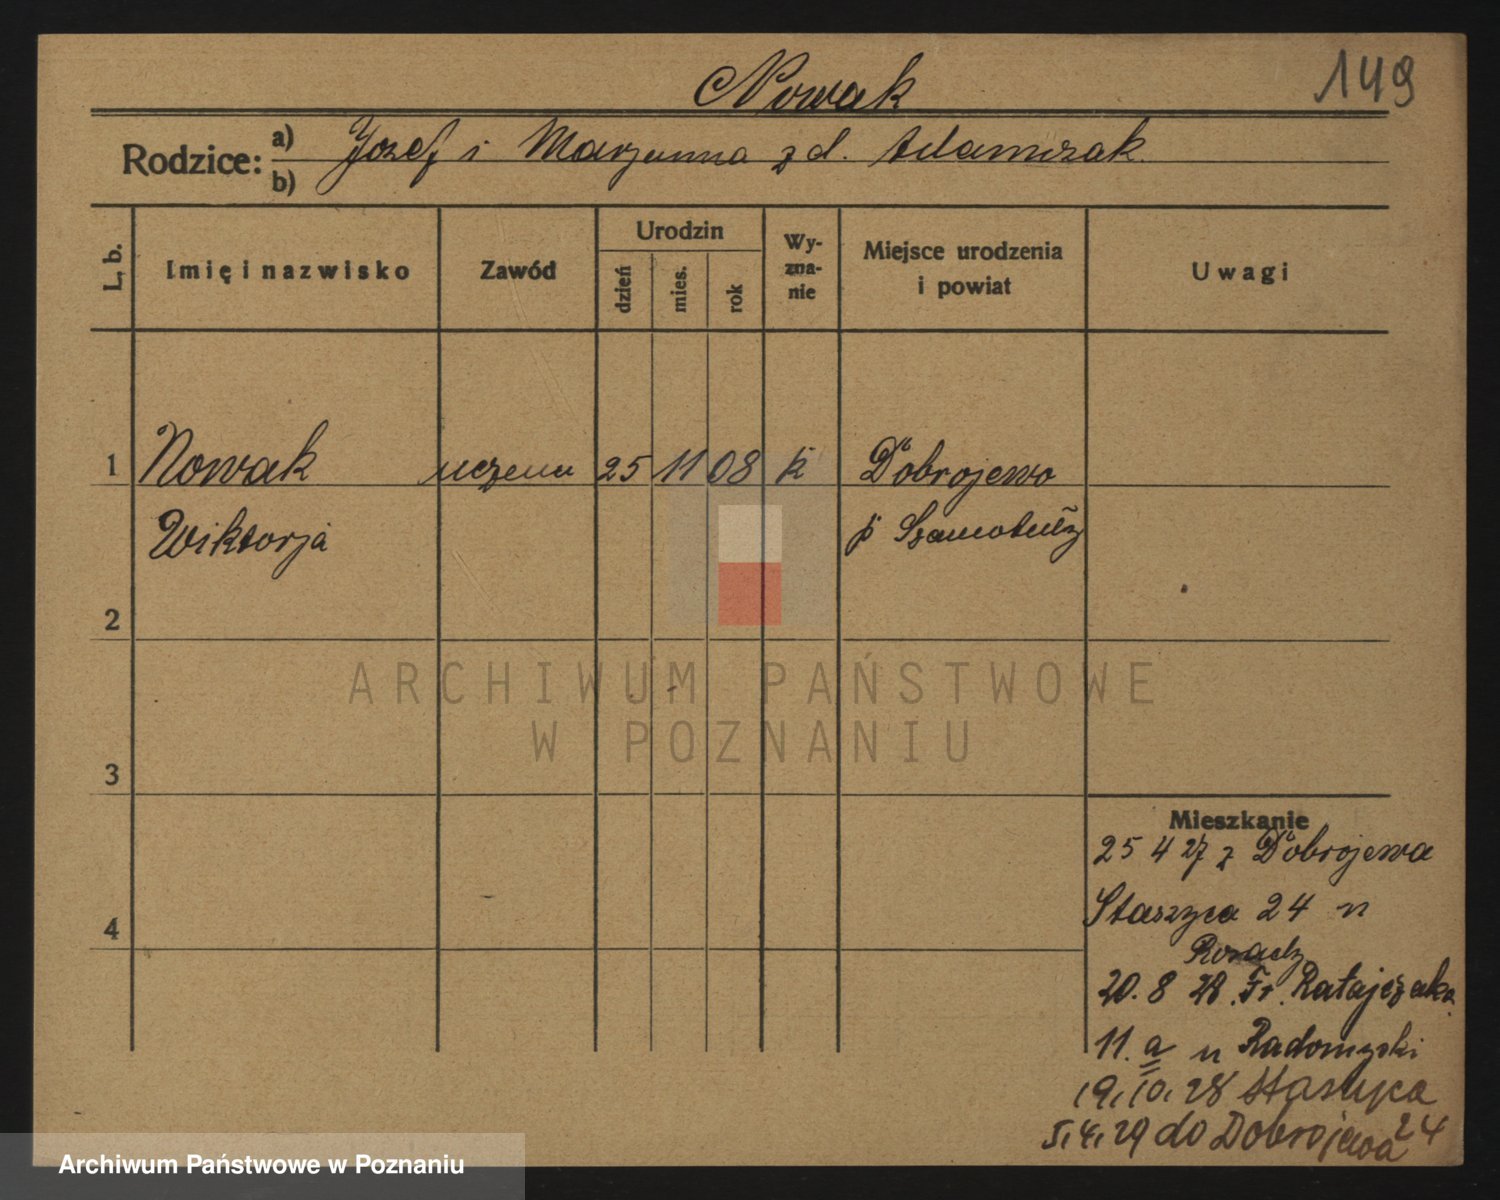 Nowak
149
Rodzice: a) b) Jozef i Maryanna z d. Adamczak
L. b.
Imię i nazwisko
Zawód
Urodzin
dzień
mies.
rok
Wy-
zna-
nie
Miejsce urodzenia
i powiat
Uwagi
1 Nowak uczenn 25 11 08 k Dobrojewo
Wiktorja p Szamotuły
2
3
4
Mieszkanie
25 4 27 z Dobrojewa
Staszyca 24 u
20. 8 28. Fr. Ratajczaka
11. a u Radomski
19. 10. 28 Staszyca 24
5. 4. 29 do Dobrojewa
ARCHIWUM PAŃSTWOWE
W POZNANIU
Archiwum Państwowe w Poznaniu